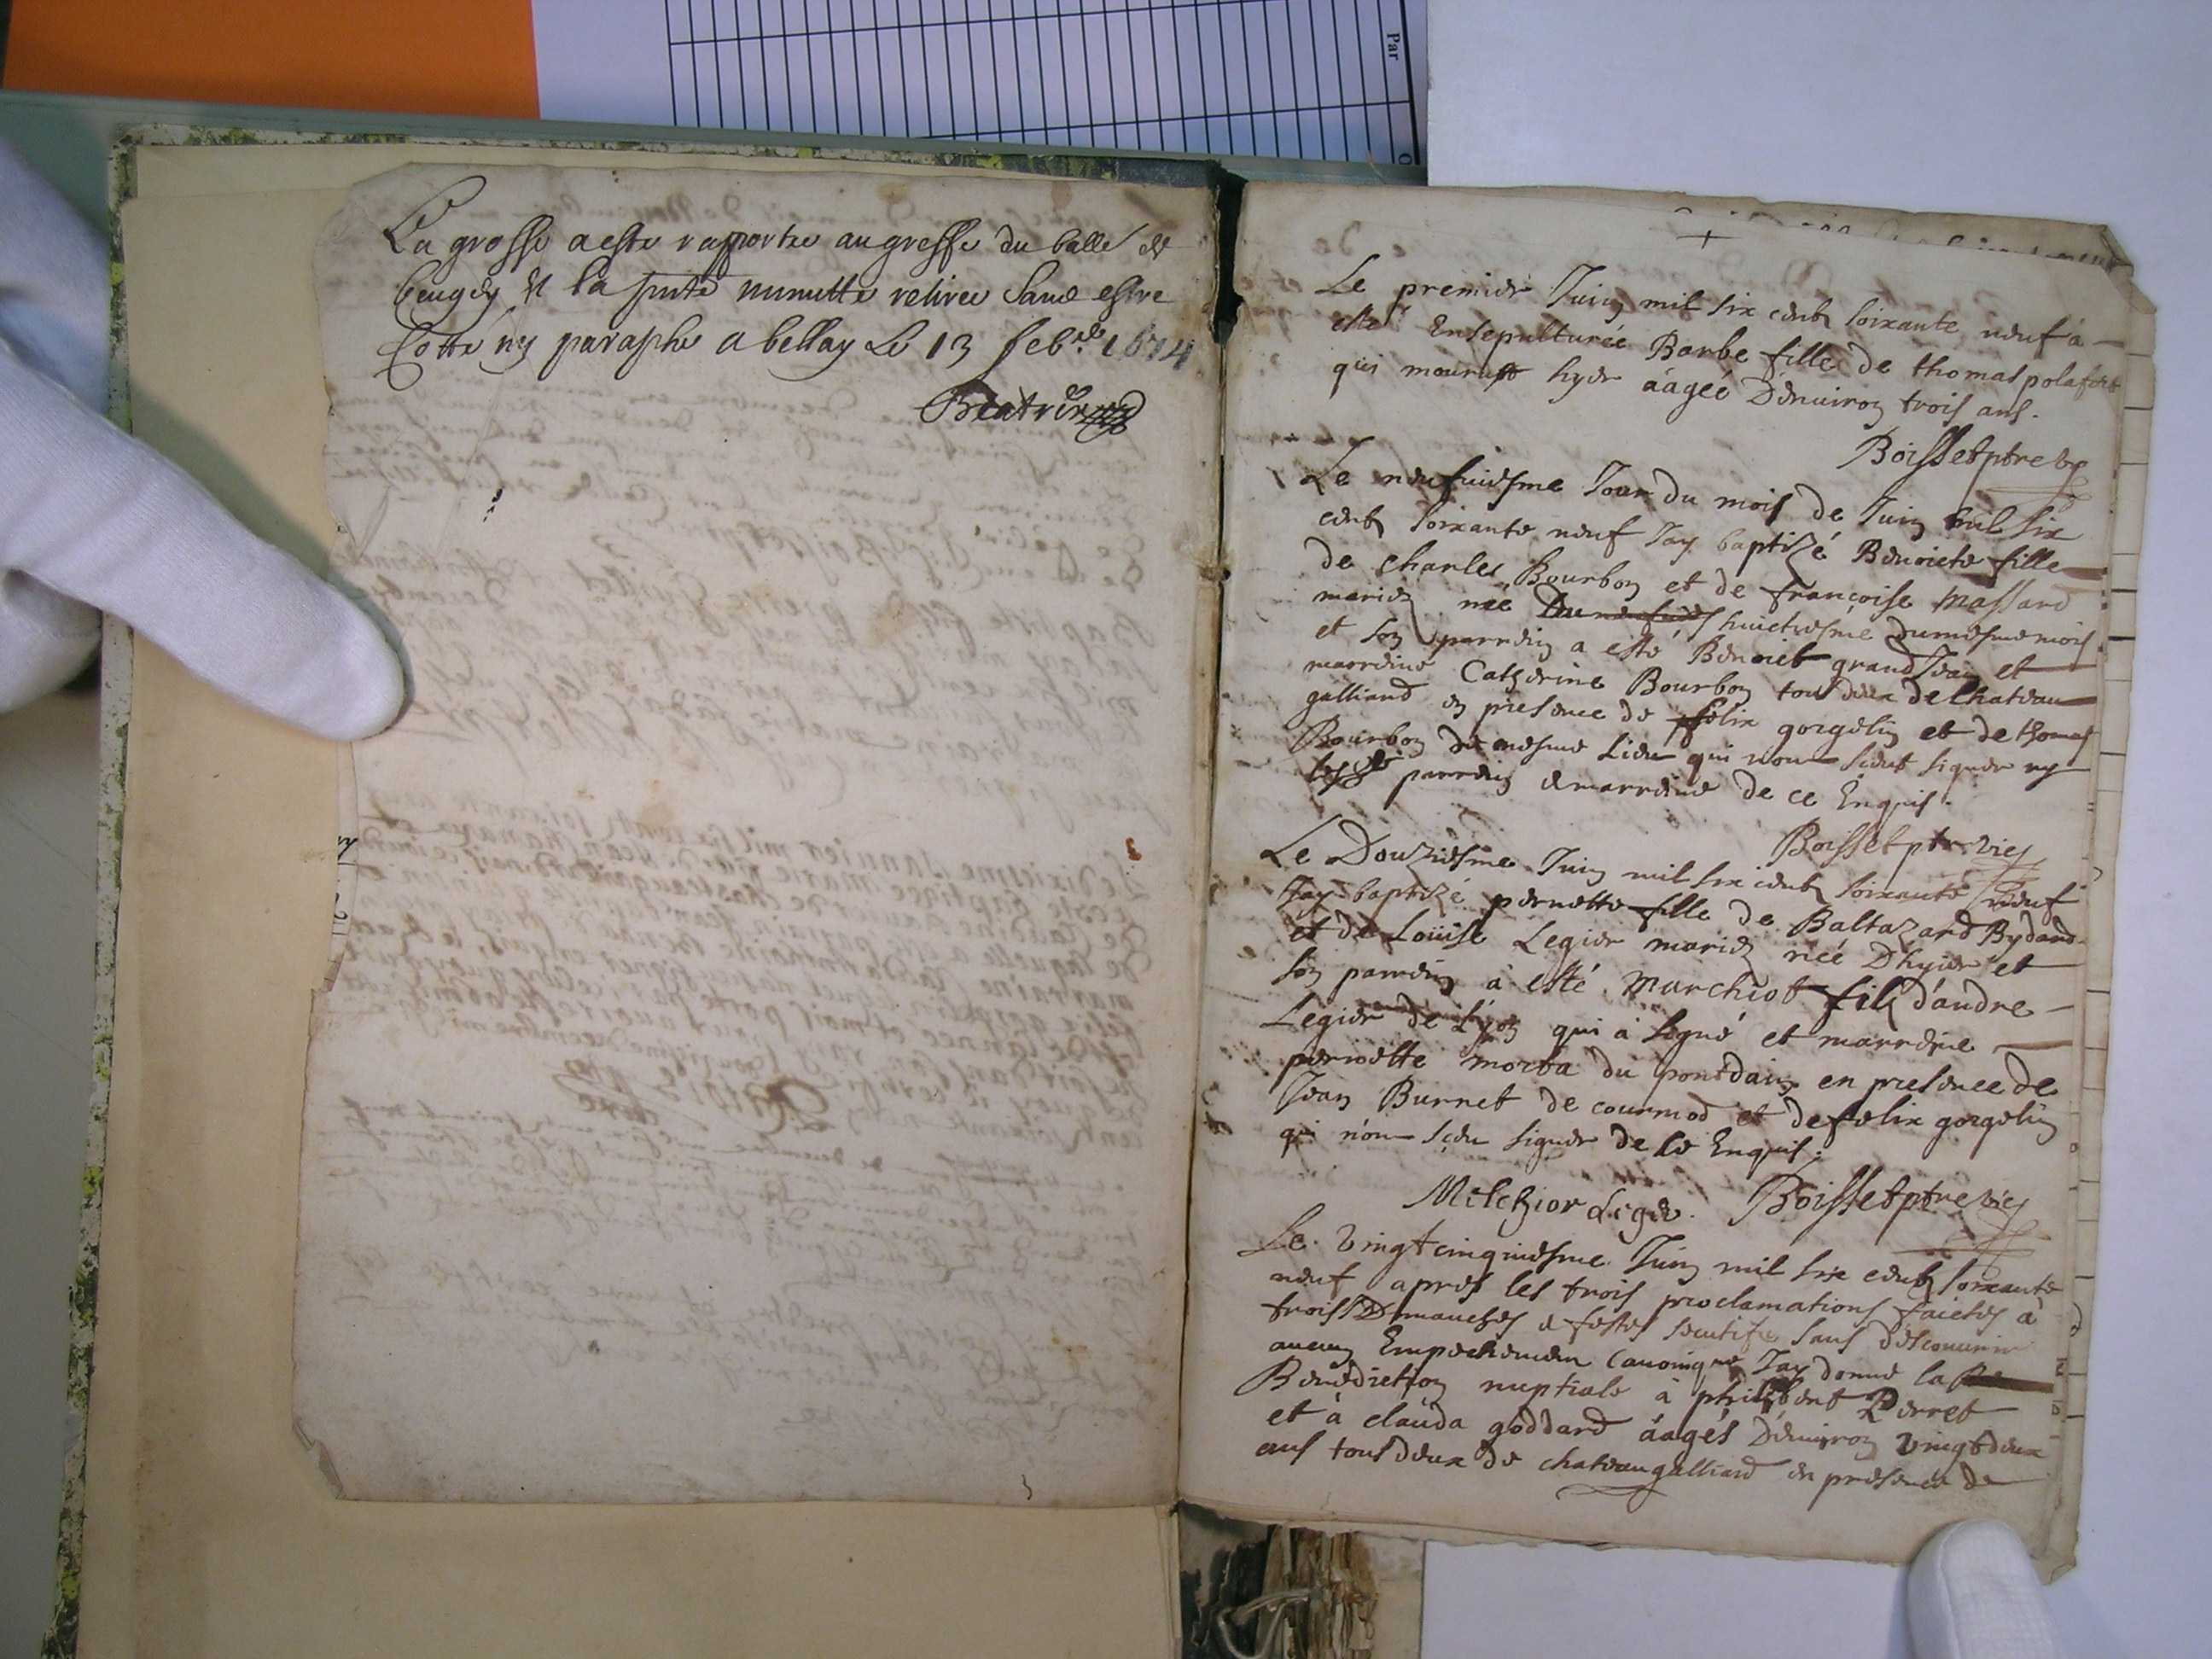 Par
La grosse a esté rapportée au greffe du balle de
beugey et la pnte minutte retiree sans estre
Cotté ny paraphe a bellay Le 13 feb. 1674
+
Le premier Juin mil six cents soixante neuf à
esté Ensepulturée Barbe fille de thomas polafert
qui mourust hyer áagée D'environ trois ans.
Boisset ptre vic
Le neufuiesme Jour du mois de Juin mil six
cents soixante neuf Jay baptizé Benoiete fille
de charles Bourbon et de françoise massard
mariez née huictiesme du mesme mois
et son parrein a esté Benoiet grand Jean et
marreine Catherine Bourbon tous deux de Chateau
galliard en presence de felix gorgelin et de thomas
Bourbon de mesme Lieu qui n'ont sceut signer ny
lesd parrein & marreine de ce Enquis.
Boisset ptre vic
Le Douziesme Juin mil six cents soixante neuf
Jay baptizé pernette fille de Baltazard Bydard
et de Loüise Legier mariez née D'hyier et
son parrein à esté Marchiot filz d'andre
Legier de Lyon qui à signé et marreine
pernette morba du pontdain en presence de
Jean Burnet de courmod et de felix gorgelin
qui n'ont sçeu signer de ce Enquis.
Melchior Leger. Boisset ptre vic
Le vingt cinquiesme Juin mil six cents soixante
neuf apres les trois proclamations faictes à
trois Dimanches & festes secutifs sans descouurir
aucun Empechement Canonique Jay donné la
Benediction nuptiale à philibert Perret
et à clauda goddard áagés D'environ vingt deux
ans tous deux de chateaugalliard en presence de